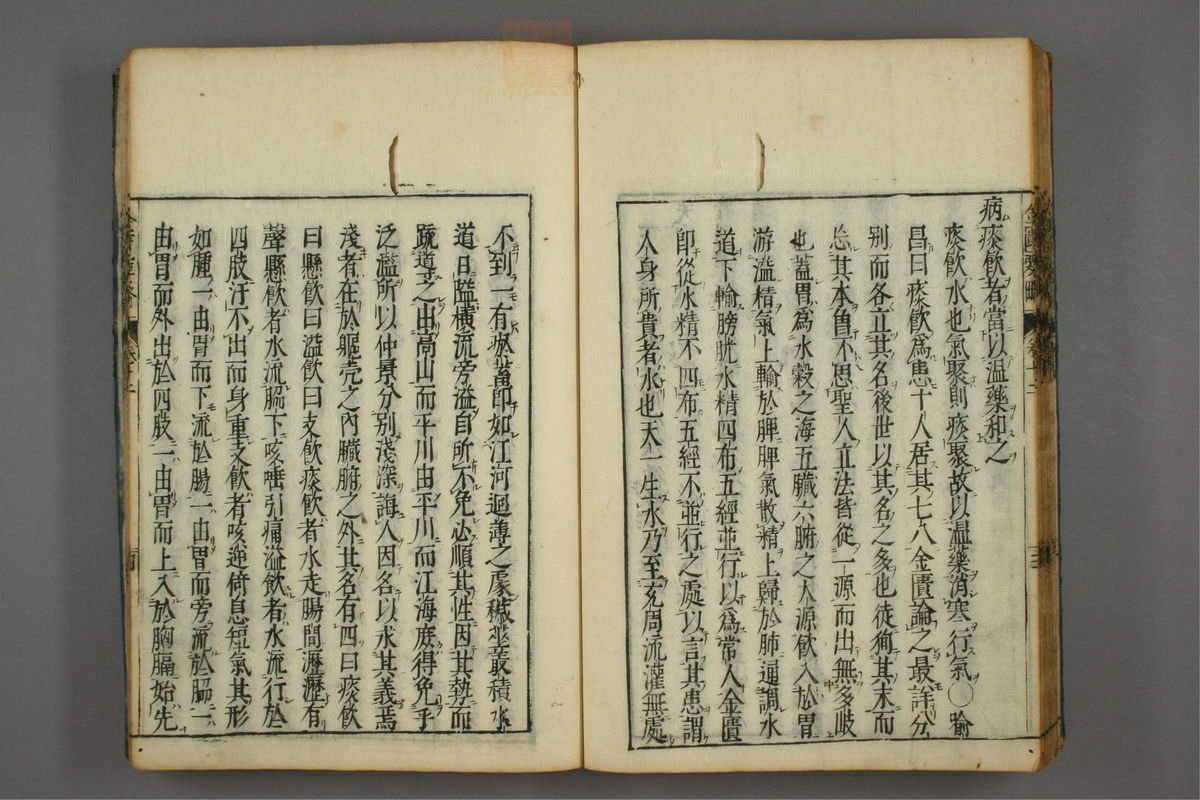 病痰飲者當以温藥和之
痰飲水也氣聚則痰聚故以温藥消寒行氣〇喻
昌曰痰飲爲患十人居其七八金匱論之最詳分
别而各立其名後世以其名之多也徒狥其末而
忘其本曾不思聖人立法皆從一源而出無多岐
也蓋胃爲水穀之海五臓六腑之大源飲入於胃
游溢精氣上輸於脾脾氣散精上歸於肺通調水
道下輸膀胱水精四布五經並行以爲常人金匱
卽從水精不四布五經不並行之處以言其患謂
人身所貴者水也天一生水乃至充周流灌無處
不到一有瘀蓄卽如江河迴薄之處穢莝叢積水
道日隘橫流旁溢自所不免必順其性因其勢而
疏導之由高山而平川由平川而江海庶得免乎
泛濫所以仲景分别淺深誨人因名以求其義焉
淺者在於軀壳之內臓腑之外其名有四曰痰飲
曰懸飲曰溢飲曰支飲痰飲者水走腸間瀝瀝有
聲懸飲者水流脇下咳唾引痛溢飲者水流行於
四肢汗不出而身重支飲者咳逆倚息短氣其形
如腫一由胃而下流於腸一由胃而旁流於脇一
由胃而外出於四肢一由胃而上入於胸膈始先
金匱要略